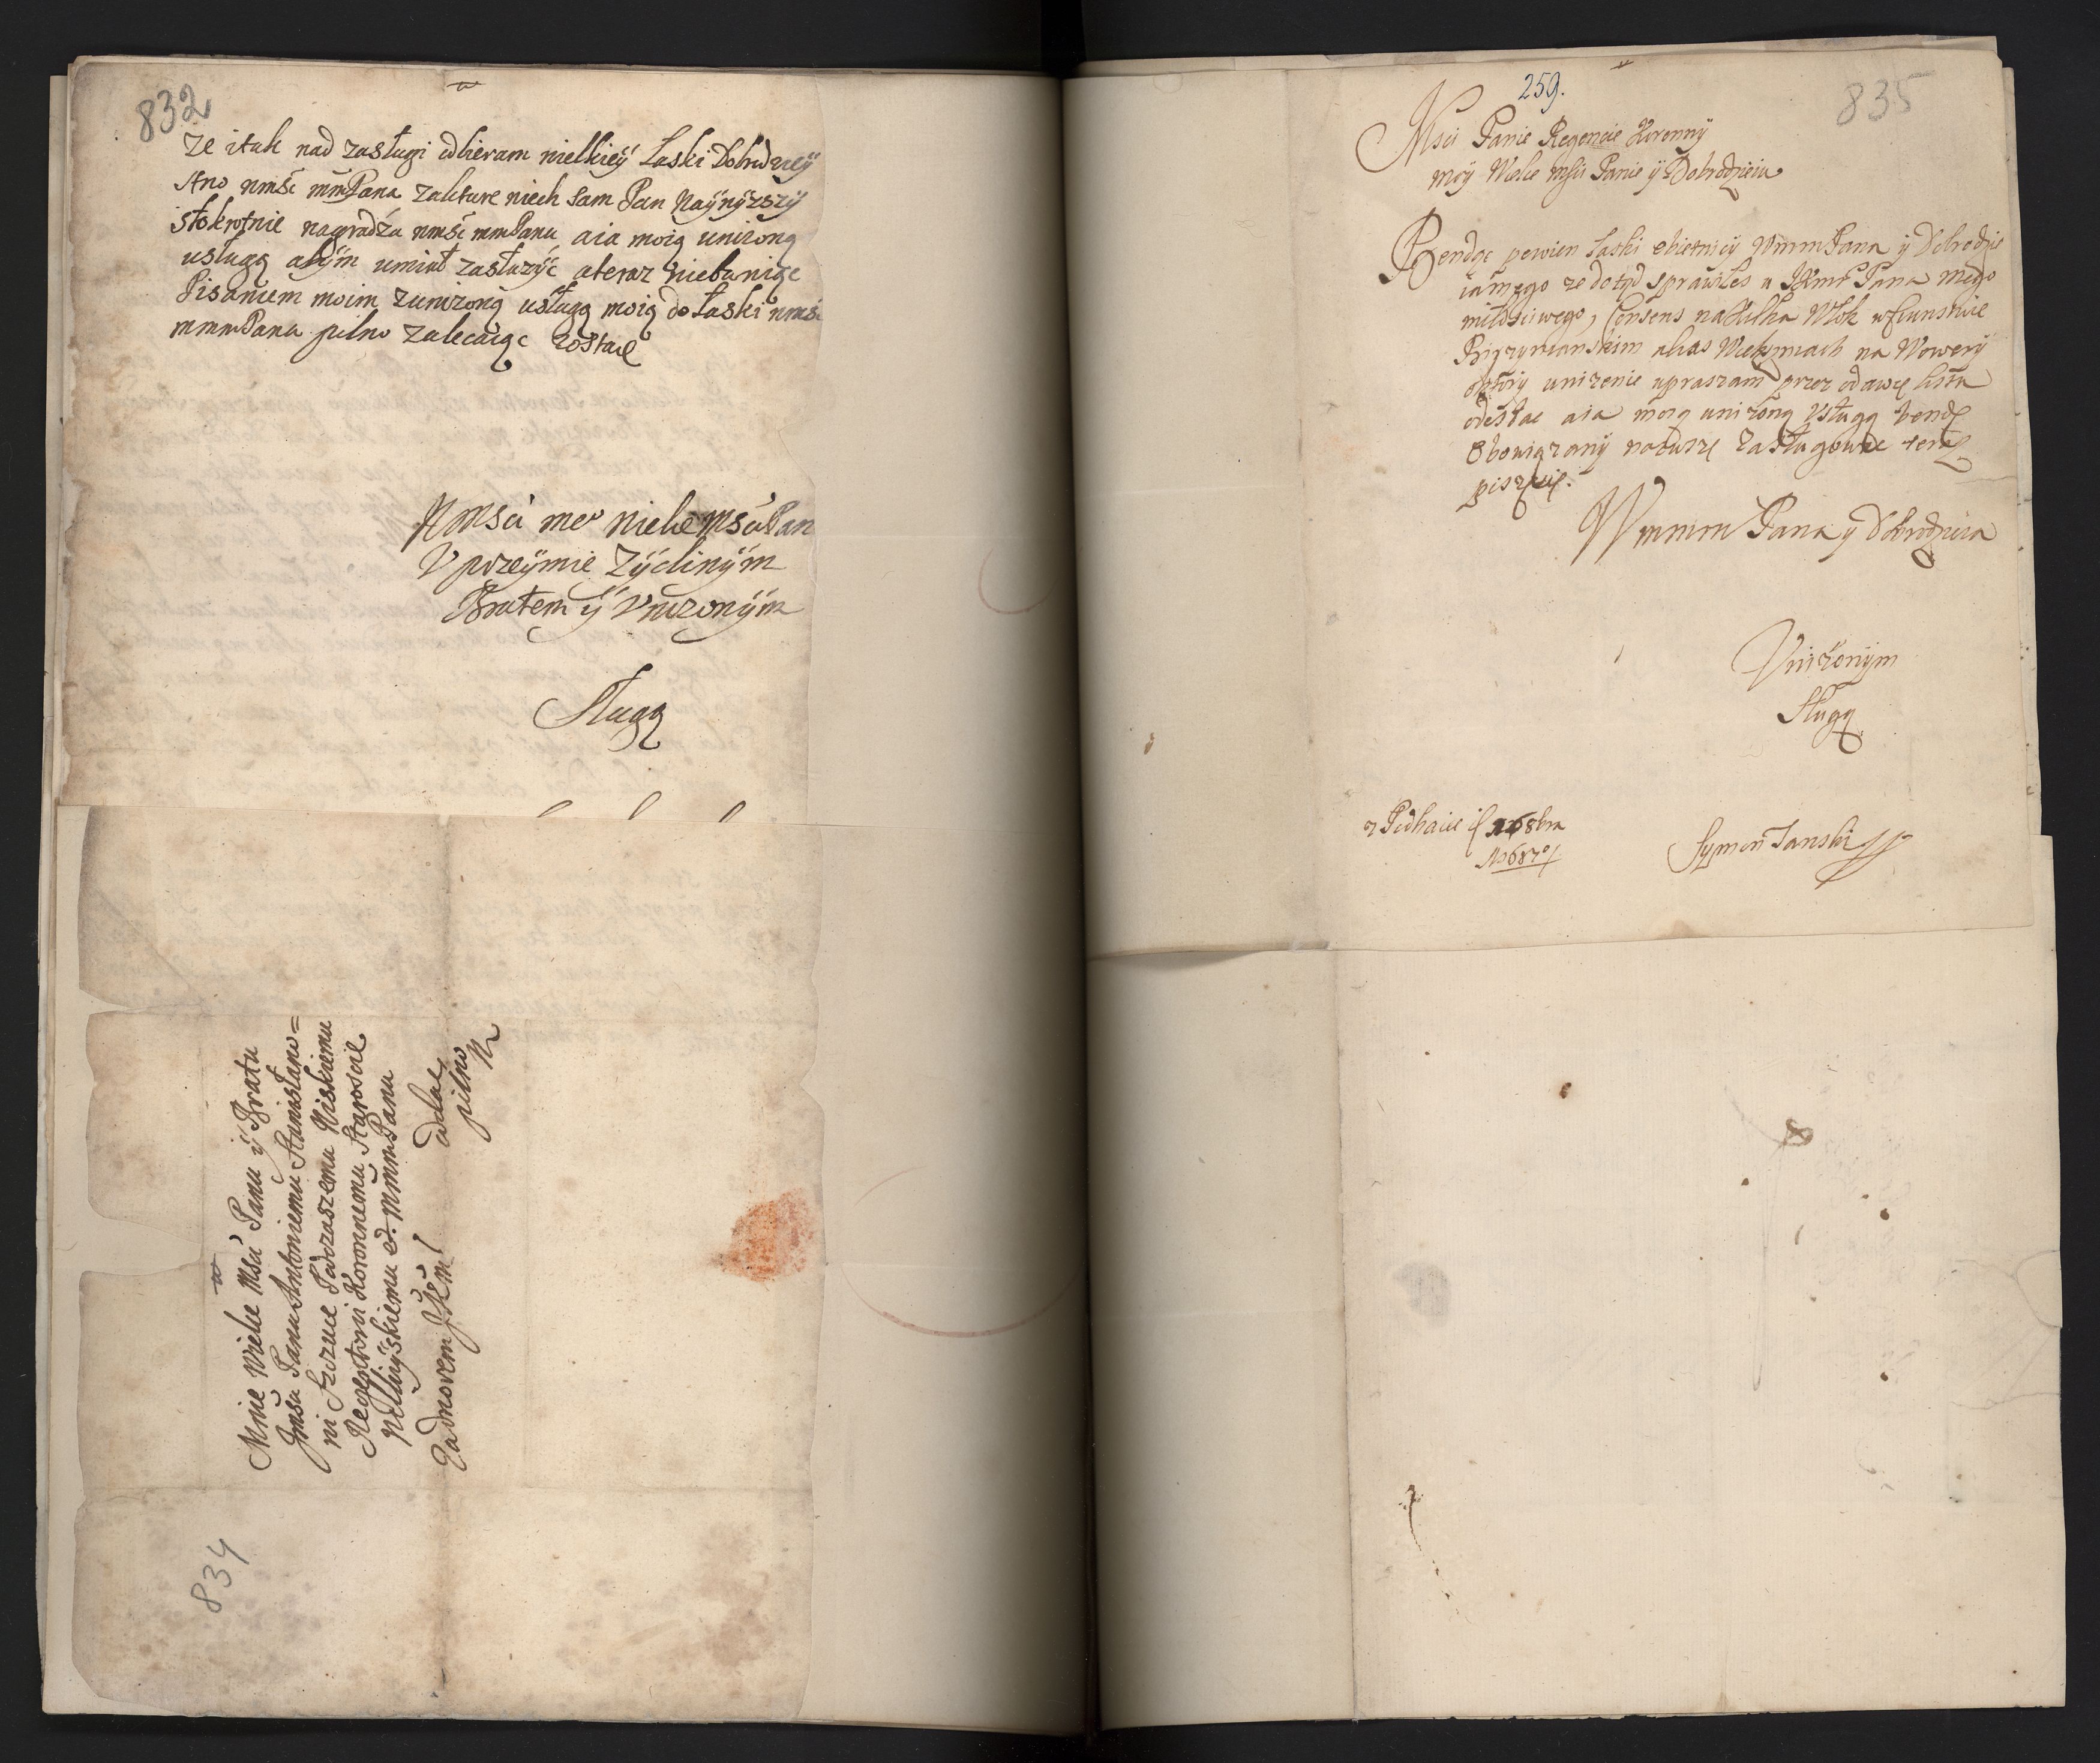 832
Ze itak nad zasługi odbieram wielkiey Łaski Dobrodziey
stwo wmści mmPana zaktore niech sam Pan Naywyzszy
stokrotnie nagradza wmści mmPanu aia moią unizoną
usługą abym umiał zasłuzyć ateraz niebawiąc
Pisaniem moim zunizoną usługą moią do Łaski wmści
mmmPana pilno zalecaiąc zostaię
Wmści me° wielce MsciPan
Uprzeymie Zycliwym
Bratem y Unizonym
Sługą
Mnie Wielce Msci Panu y Bratu
Jmści Panu Antoniemu Stanisławo=
wi Szczuce Podczaszemu Wiskiemu
Regentowi Koronnemu Staroscie
mmmPanu
oddać
pilno
834
259.
835
Msci Panie Regencie Koronny
moy Wielce Msci Panie y Dobrodzieiu
Bendąc pewien łaski obietnicy WmmPana y Dobrodzie
ia mego ze dotąd sprawiłes u Pana mego
miłosciwego, Consens na kilka Włok
alias na Wowery
oktory unizenie upraszam przez odawcę listu
odesłac aia moią unizoną Usługą bendę
Obowiązany
Wmmm Pana y Dobrodzieia
Unizonym
Sługą
z Podhaiec
Symon Janski